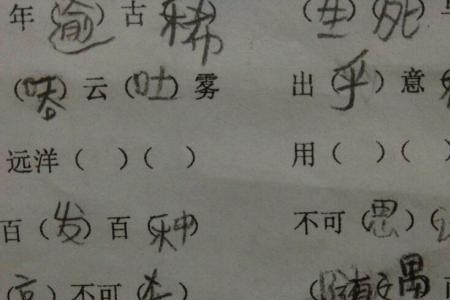 年（逾）古（稀） （生）（死）
（吞）云（吐）雾 出（乎）意
远洋（ ）（ ） 用（ ）（
百（发）百（种） 不可（思）（
不可（ （随）遇